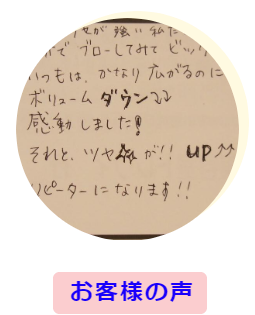 セが強い私た
でブローしてみてビック
いつもは、かなり広がるのに
ボリュームダウン⤵⤵
感動しました!
それと、ツヤ感が!! UP⤴⤴
リピーターになります!!
お客様の声